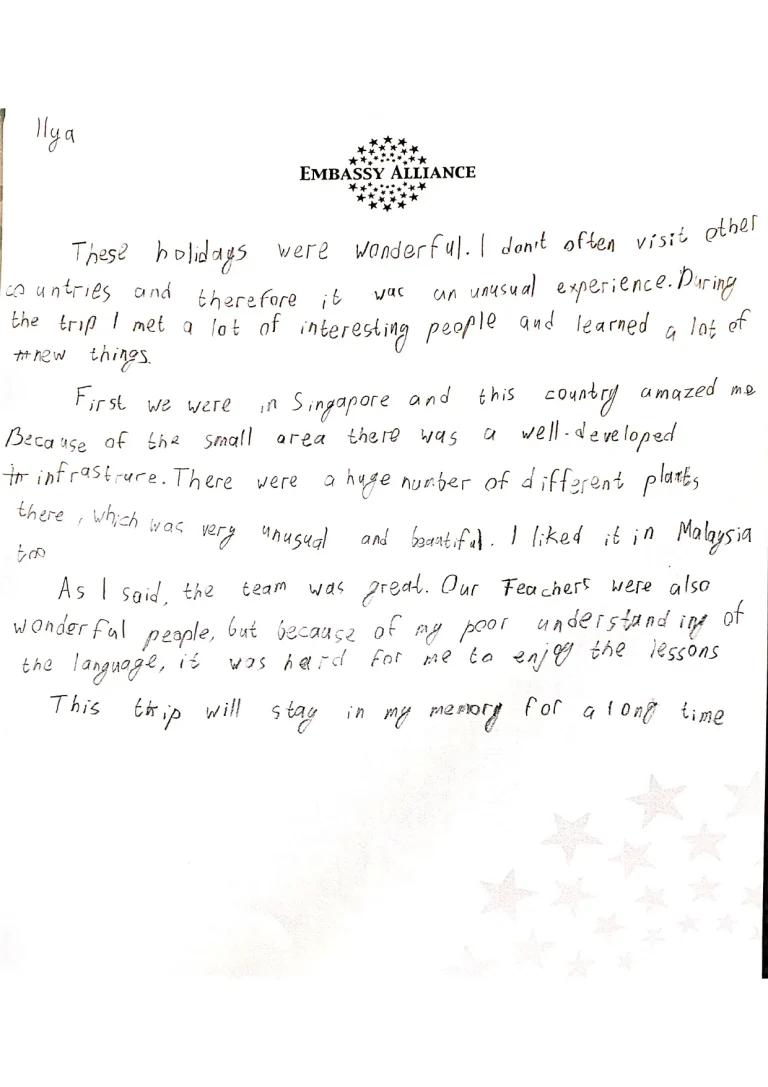 Ilya
EMBASSY ALLIANCE
These holidays were wonderful. I don't often visit other
countries and therefore it was an unusual experience. During
the trip I met a lot of interesting people and learned a lot of
new things.
First we were in Singapore and this country amazed me
Because of the small area there was a well-developed
infrastrure. There were a huge number of different plants
there, which was very unusual and beautiful. I liked it in Malaysia
too
As I said, the team was great. Our Teachers were also
wonderful people, but because of my poor understanding of
the language, it was hard for me to enjoy the lessons
This trip will stay in my memory for a long time